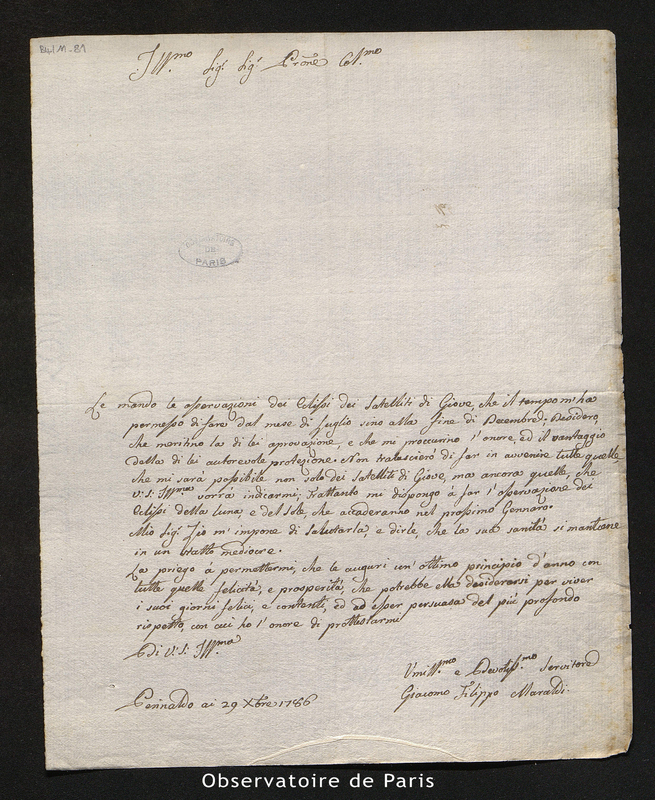 B4/M-81
Ill.mo Sig.r Sig.r Prone Col.mo
OBSERVATOIRE
DE
PARIS
Le mando le osservazioni dei Eclissi dei Satelliti di Giove, che il tempo m'ha
permesso di fare dal mese di Luglio sino alla fine di Decembre; Desidero,
che meritino la di lei aprovazione, e che mi proccurino l'onore, ed il vantaggio
della di lei autorevole protezione. Non tralascierò di far in avvenire tutte quelle,
che mi sarà possibile non solo dei Satelliti di Giove, ma ancora quelle, che
V: S: Ill.ma vorrà indiarmi; Trattanto mi dispongo à far l'osservazione dei
Eclissi della Luna, e del Sole, che accaderanno nel prossimo Gennaro.
Mio Sig.r Zio m'impone di salutarla, e dirle, che la sua sanità si mantiene
in un stato mediocre.
La priego à permettermi, che le auguri un' ottimo principio d'anno con
tutte quelle felicità, e prosperità, che potrebbe ella desiderarsi per viver
i suoi giorni felici, e contenti, ed ad esser persuasa del più profondo
rispetto, con cui ho l'onore di prottestarmi
Di V: S: Ill.ma
Umiliss.mo e Devotiss.mo Servitore
Perinaldo ai 29 Xbre 1786
Giacomo Filippo Maraldi.
Observatoire de Paris